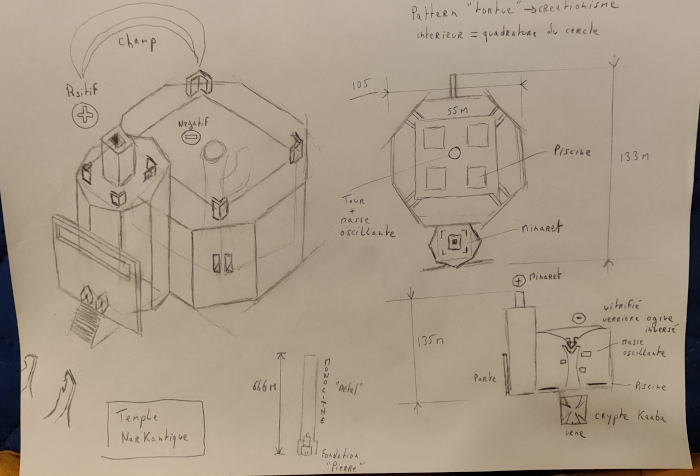 Pattern "tortue" → creationisme
interieur = quadrature du cercle
Champ
Positif
+
Negatif
−
105
55m
Piscine
133m
Tour
+
masse
oscillante
Minaret
+ Minaret
−
vitrifié
verriere ogive
inversé
masse
oscillante
135m
Porte
Piscine
crypte Kaaba
urne
666m
MONOLITHE
"Metal"
Fondation
"Pierre"
Temple
NarKantique